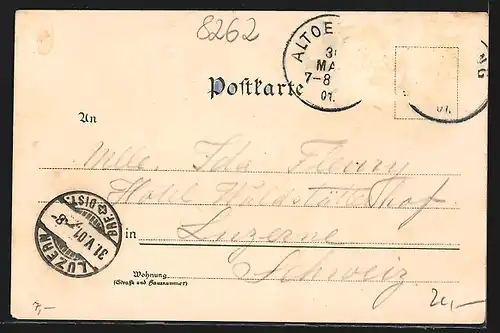 8262
ALTOE
30
MA
7-8
01.
NG
01.
Postkarte
An
Mlle. Ida Fleury
Hotel Waldstätterhof
in Luzerne
Schweiz
Wohnung
(Straße und Hausnummer)
LUZERN
31.V.01.
BRF. DIST.
7,-
24,-